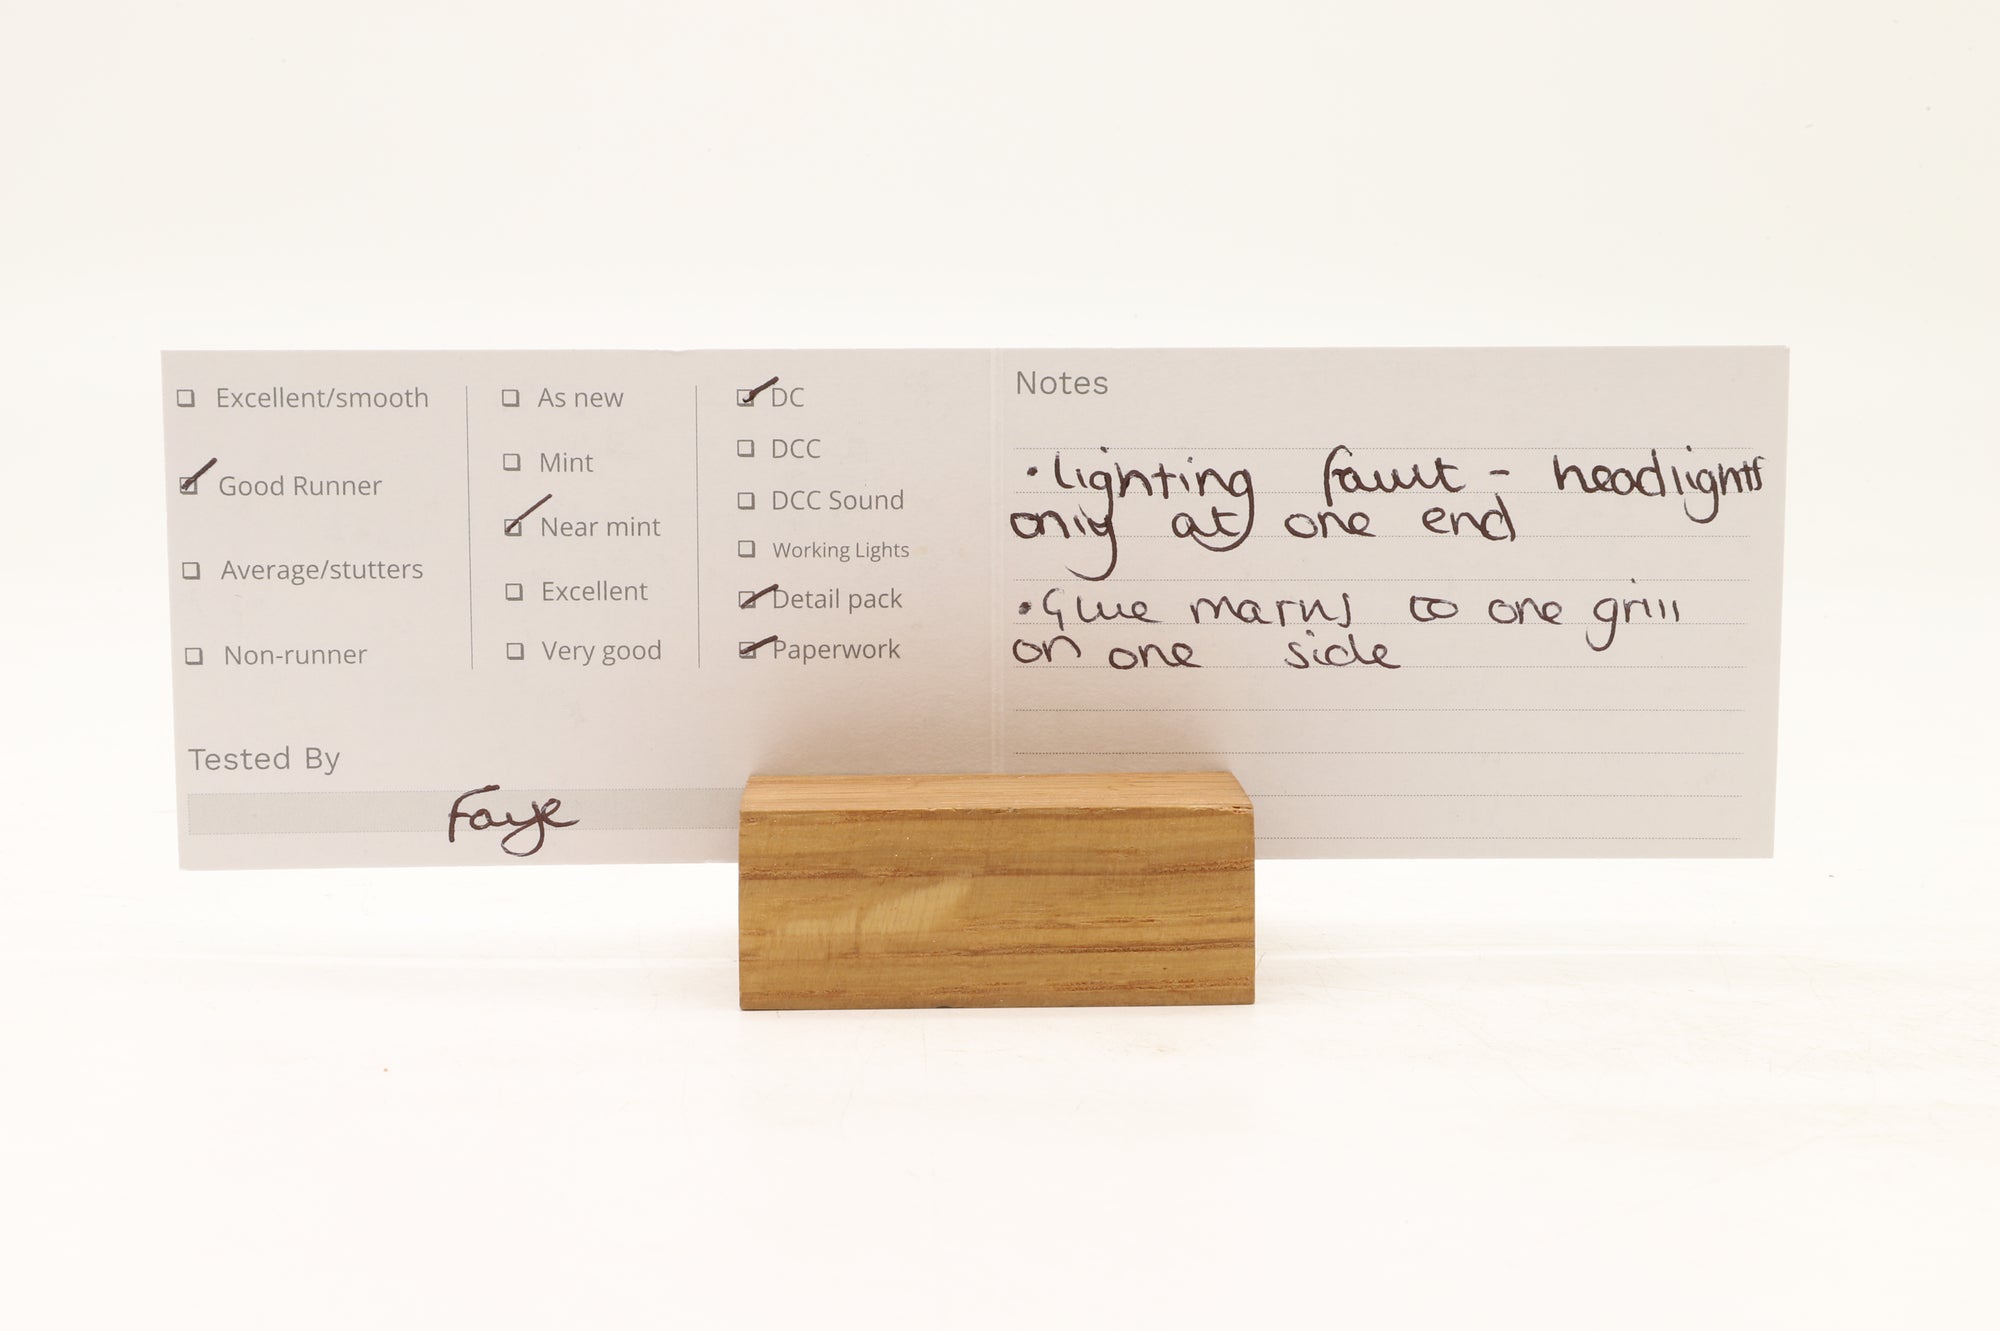 ☐ Excellent/smooth
☑ Good Runner
☐ Average/stutters
☐ Non-runner
☐ As new
☐ Mint
☑ Near mint
☐ Excellent
☐ Very good
☑ DC
☐ DCC
☐ DCC Sound
☐ Working Lights
☑ Detail pack
☑ Paperwork
Tested By
Faye
Notes
• lighting fault - headlights
only at one end
• Glue marks to one grill
on one side